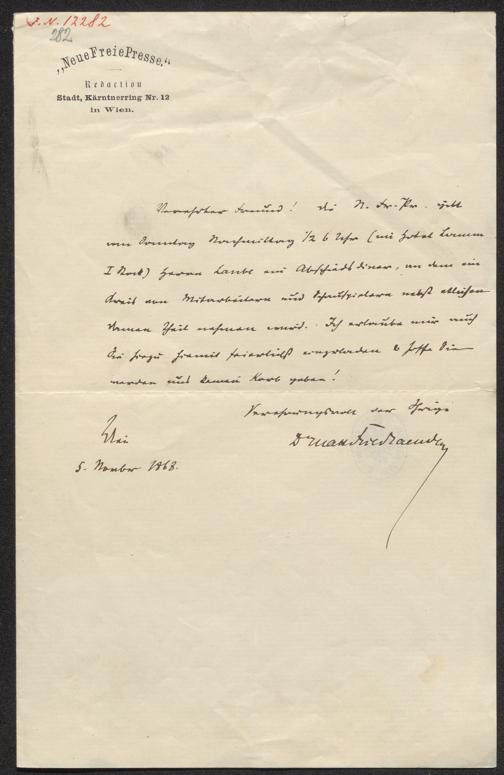 J. N. 12282
282
„Neue Freie Presse.“
Redaction
Stadt, Kärntnerring Nr. 12
in Wien.
Verehrter Freund! Die N. Fr. Pr. gibt
am Sonntag Nachmittag 1/2 6 Uhr (im Hotel Lamm
I Stock) Herrn Laube ein Abschiedsdiner, an dem ein
Kreis von Mitarbeitern und Schauspielern nebst etlichen
Damen Theil nehmen wird. Ich erlaube mir auch
Sie hiezu hiemit feierlichst einzuladen & hoffe Sie
werden uns keinen Korb geben!
Verehrungsvoll der Ihrige
Dr Max Friedlaender
Wien
5. November 1868.